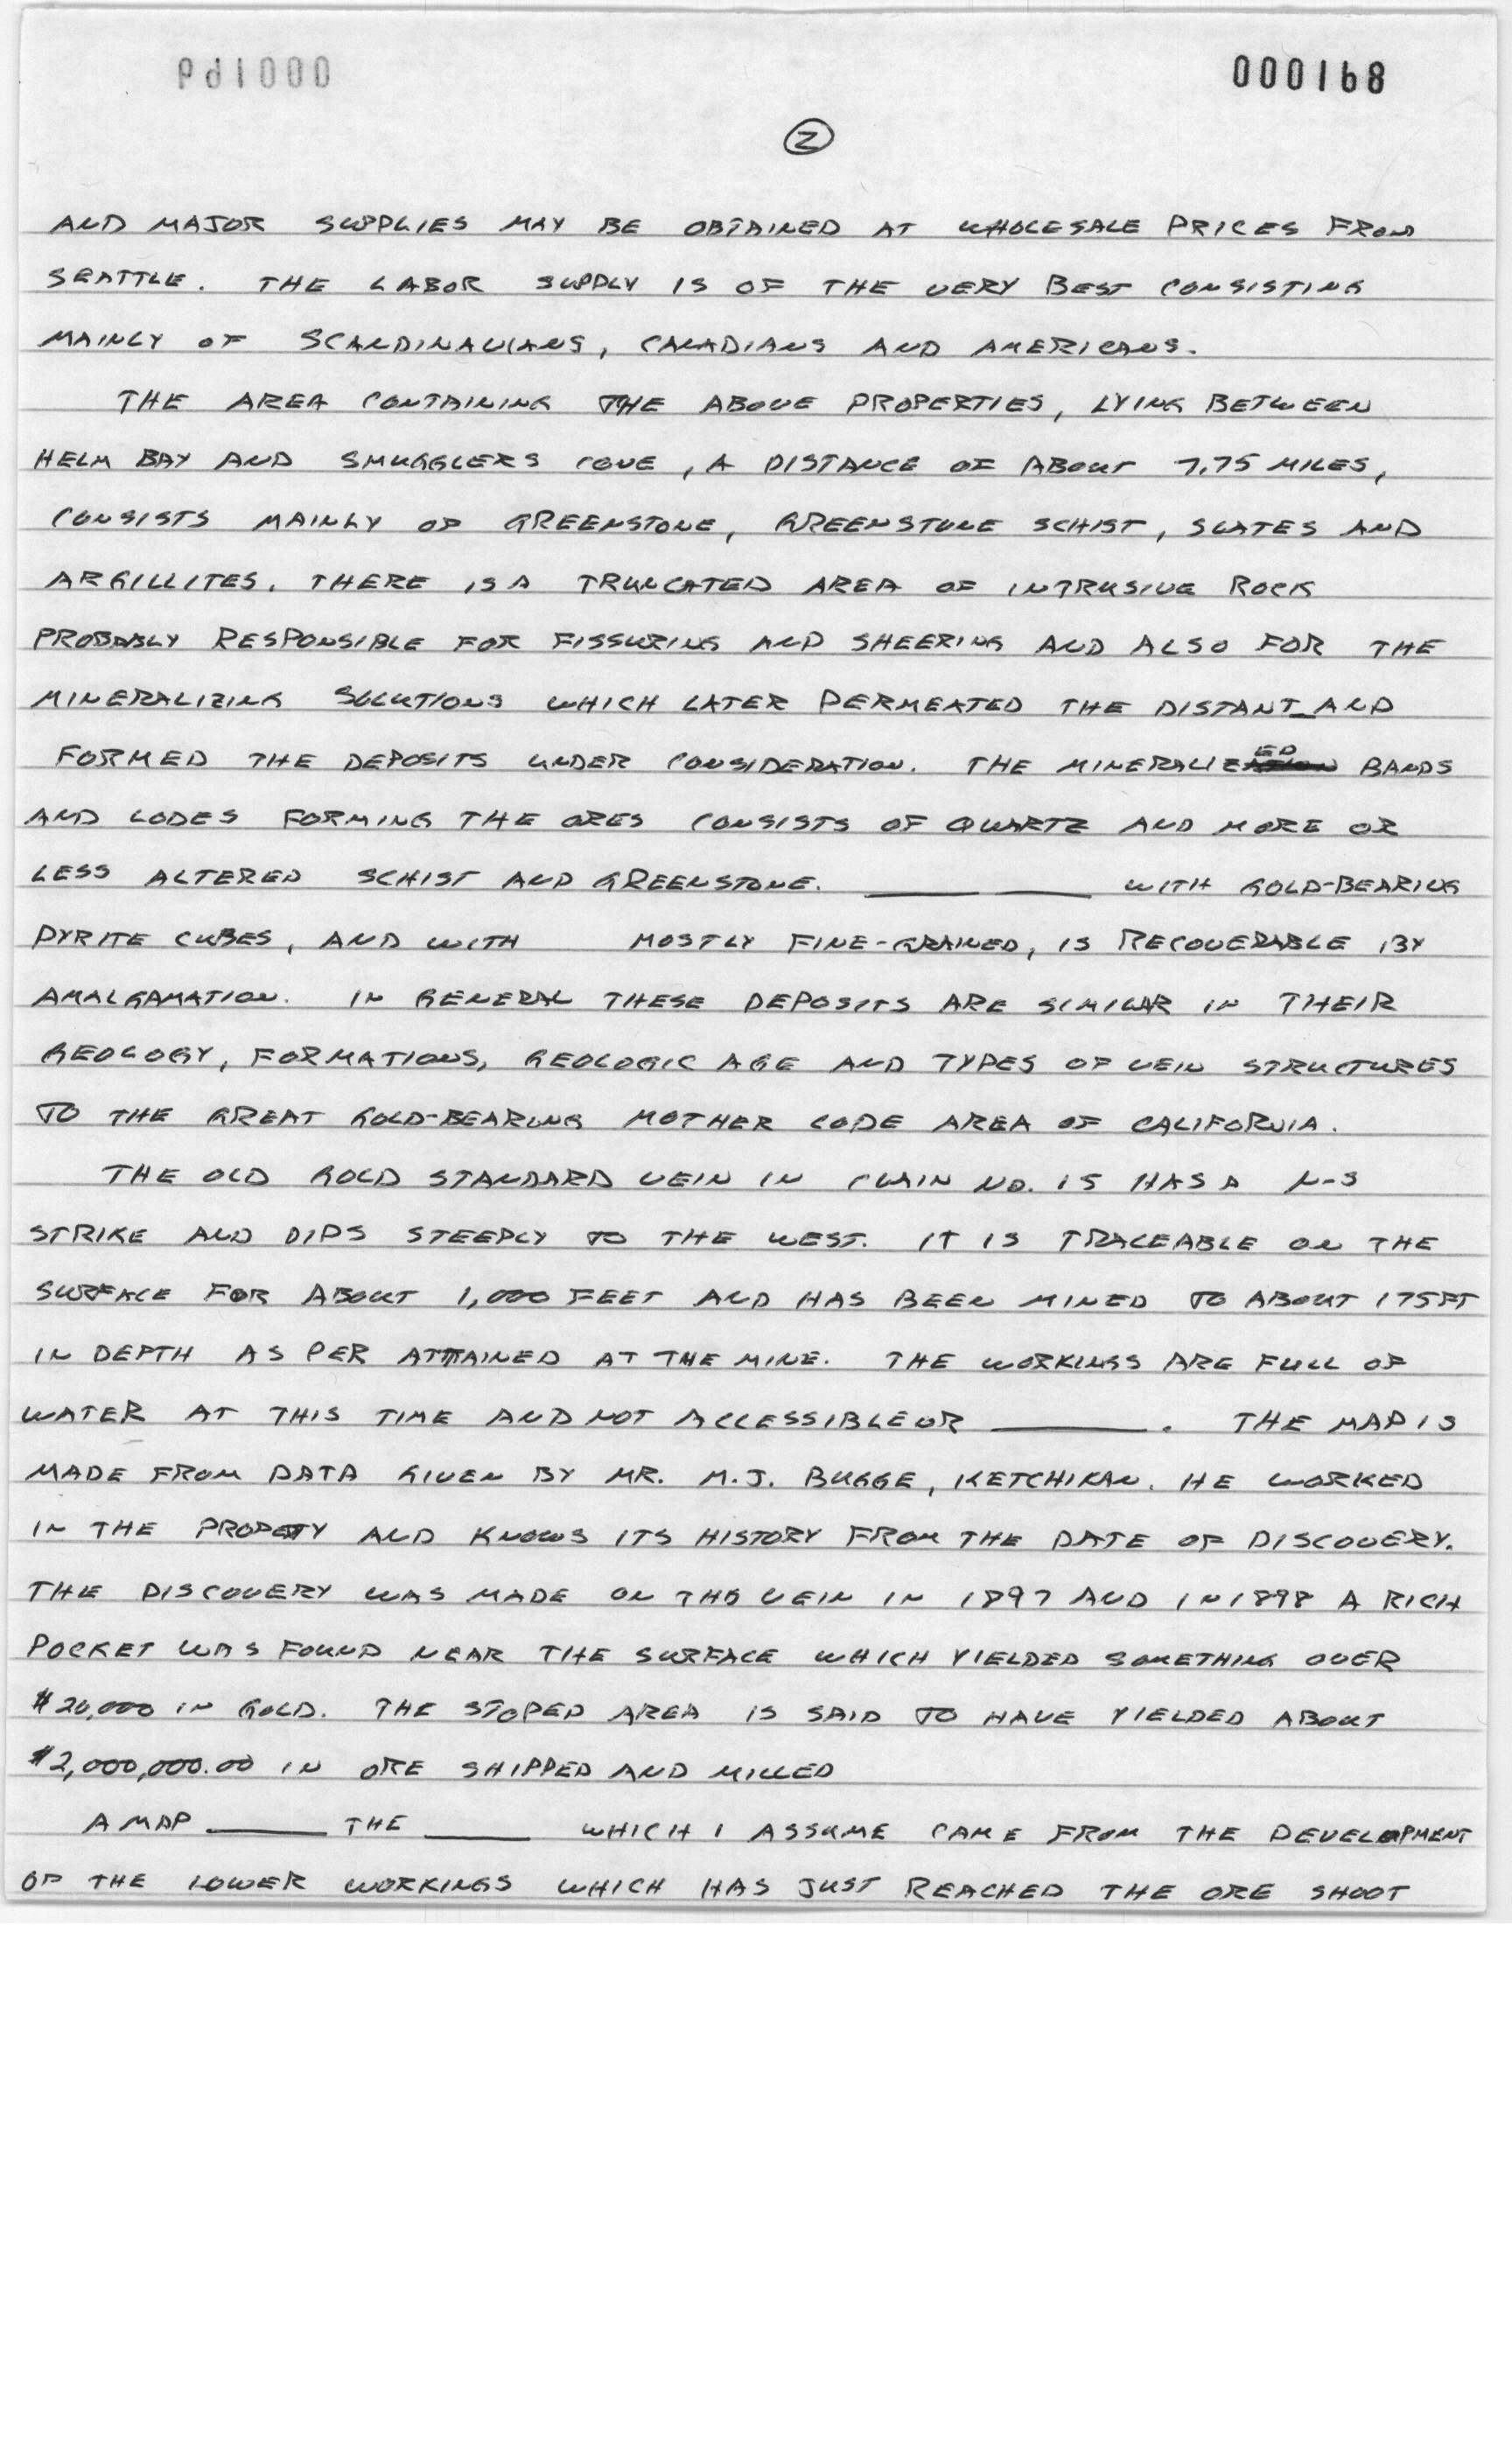 000168
2
AND MAJOR SUPPLIES MAY BE OBTAINED AT WHOLESALE PRICES FROM
SEATTLE. THE LABOR SUPPLY IS OF THE VERY BEST CONSISTING
MAINLY OF SCANDINAVIANS, CANADIANS AND AMERICANS.
THE AREA CONTAINING THE ABOVE PROPERTIES, LYING BETWEEN
HELM BAY AND SMUGGLERS COVE, A DISTANCE OF ABOUT 7.75 MILES,
CONSISTS MAINLY OF GREENSTONE, GREENSTONE SCHIST, SLATES AND
ARGILLITES. THERE IS A TRUNCATED AREA OF INTRUSIVE ROCK
PROBABLY RESPONSIBLE FOR FISSURING AND SHEERING AND ALSO FOR THE
MINERALIZING SOLUTIONS WHICH LATER PERMEATED THE DISTANT_AND
FORMED THE DEPOSITS UNDER CONSIDERATION. THE MINERALIZED BANDS
AND LODES FORMING THE ORES CONSISTS OF QUARTZ AND MORE OR
LESS ALTERED SCHIST AND GREENSTONE. ____ ____ WITH GOLD-BEARING
PYRITE CUBES, AND WITH MOSTLY FINE-GRAINED, IS RECOVERABLE BY
AMALGAMATION. IN GENERAL THESE DEPOSITS ARE SIMILAR IN THEIR
GEOLOGY, FORMATIONS, GEOLOGIC AGE AND TYPES OF VEIN STRUCTURES
TO THE GREAT GOLD-BEARING MOTHER LODE AREA OF CALIFORNIA.
THE OLD GOLD STANDARD VEIN IN CLAIM NO. 15 HAS A N-S
STRIKE AND DIPS STEEPLY TO THE WEST. IT IS TRACEABLE ON THE
SURFACE FOR ABOUT 1,000 FEET AND HAS BEEN MINED TO ABOUT 175FT
IN DEPTH AS PER ATTAINED AT THE MINE. THE WORKINGS ARE FULL OF
WATER AT THIS TIME AND NOT ACCESSIBLE OR ____. THE MAP IS
MADE FROM DATA GIVEN BY MR. M.J. BUGGE, KETCHIKAN. HE WORKED
IN THE PROPETY AND KNOWS ITS HISTORY FROM THE DATE OF DISCOVERY.
THE DISCOVERY WAS MADE ON THE VEIN IN 1897 AND IN 1898 A RICH
POCKET WAS FOUND NEAR THE SURFACE WHICH YIELDED SOMETHING OVER
$20,000 IN GOLD. THE STOPED AREA IS SAID TO HAVE YIELDED ABOUT
$2,000,000.00 IN ORE SHIPPED AND MILLED
A MAP ____ THE ____ WHICH I ASSUME CAME FROM THE DEVELOPMENT
OF THE LOWER WORKINGS WHICH HAS JUST REACHED THE ORE SHOOT